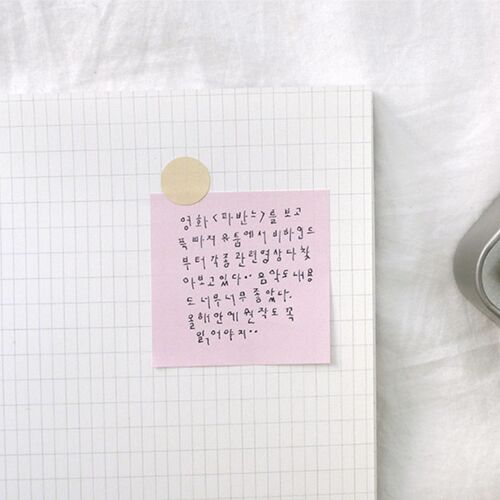 영화 <파반느>를 보고
푹 빠져 유튭에서 비하인드
부터 각종 관련 영상 다 찾
아보고 있다.. 음악도 내용
도 너무너무 좋았다.
올해 안에 원작도 꼭
읽어야지..